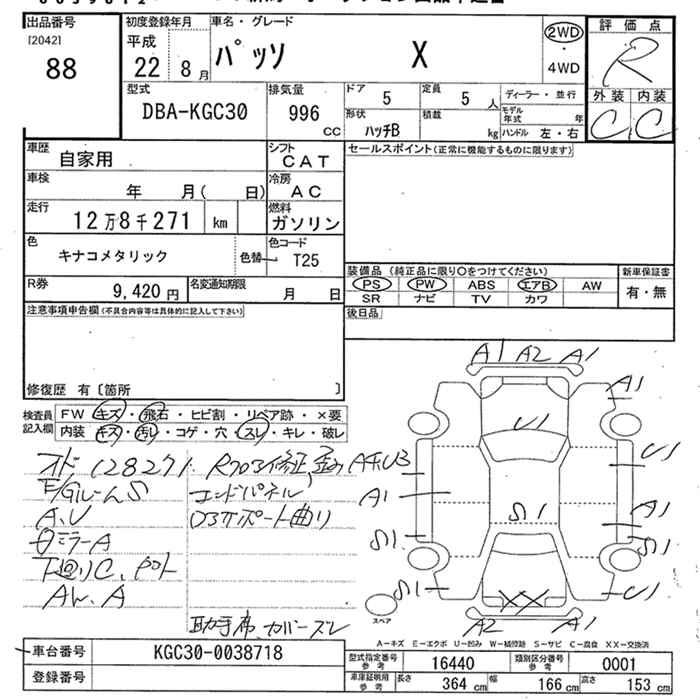 出品番号
[2042]
88
初度登録年月
平成
22 8月
車名・グレード
パッソ X
2WD
・
4WD
評価点
R
外装 内装
C C
型式
DBA-KGC30
排気量
996
CC
ドア
5
定員
5 人
形状
ハッチB
積載
kg
ディーラー・並行
モデル年式 年
ハンドル 左・右
車歴
自家用
シフト
CAT
車検
年 月( 日)
冷房
AC
走行
12万8千271 km
燃料
ガソリン
色
キナコメタリック
色替
色コード
T25
R券
9,420 円
名変通知期限
月 日
セールスポイント(正常に機能するものに限ります)
装備品 (純正品に限り○をつけてください)
PS PW ABS エアB AW
SR ナビ TV カワ
新車保証書
有・無
後日品
注意事項申告欄(不具合内容等は具体的に記入して下さい)
修復歴 有〔箇所 〕
検査員記入欄
FW キズ・飛石・ヒビ割・リペア跡・×要
内装 キズ・汚れ・コゲ・穴・スレ・キレ・破レ
オド 128271
A、U
ミラーA
下廻りC、
AW、A
エンドパネル
助手席、カバースレ
A1 A2 A1
A1
U1
U1
A1
A1
S1
S1
S1
S1
U1
XX
A2 A1
スペア
A-キズ E-エクボ U-凹み W-補修跡 S-サビ C-腐食 XX-交換済
車台番号
KGC30-0038718
登録番号
型式指定番号 参考
16440
類別区分番号 参考
0001
車庫証明用 参考
長さ 364 cm 幅 166 cm 高さ 153 cm